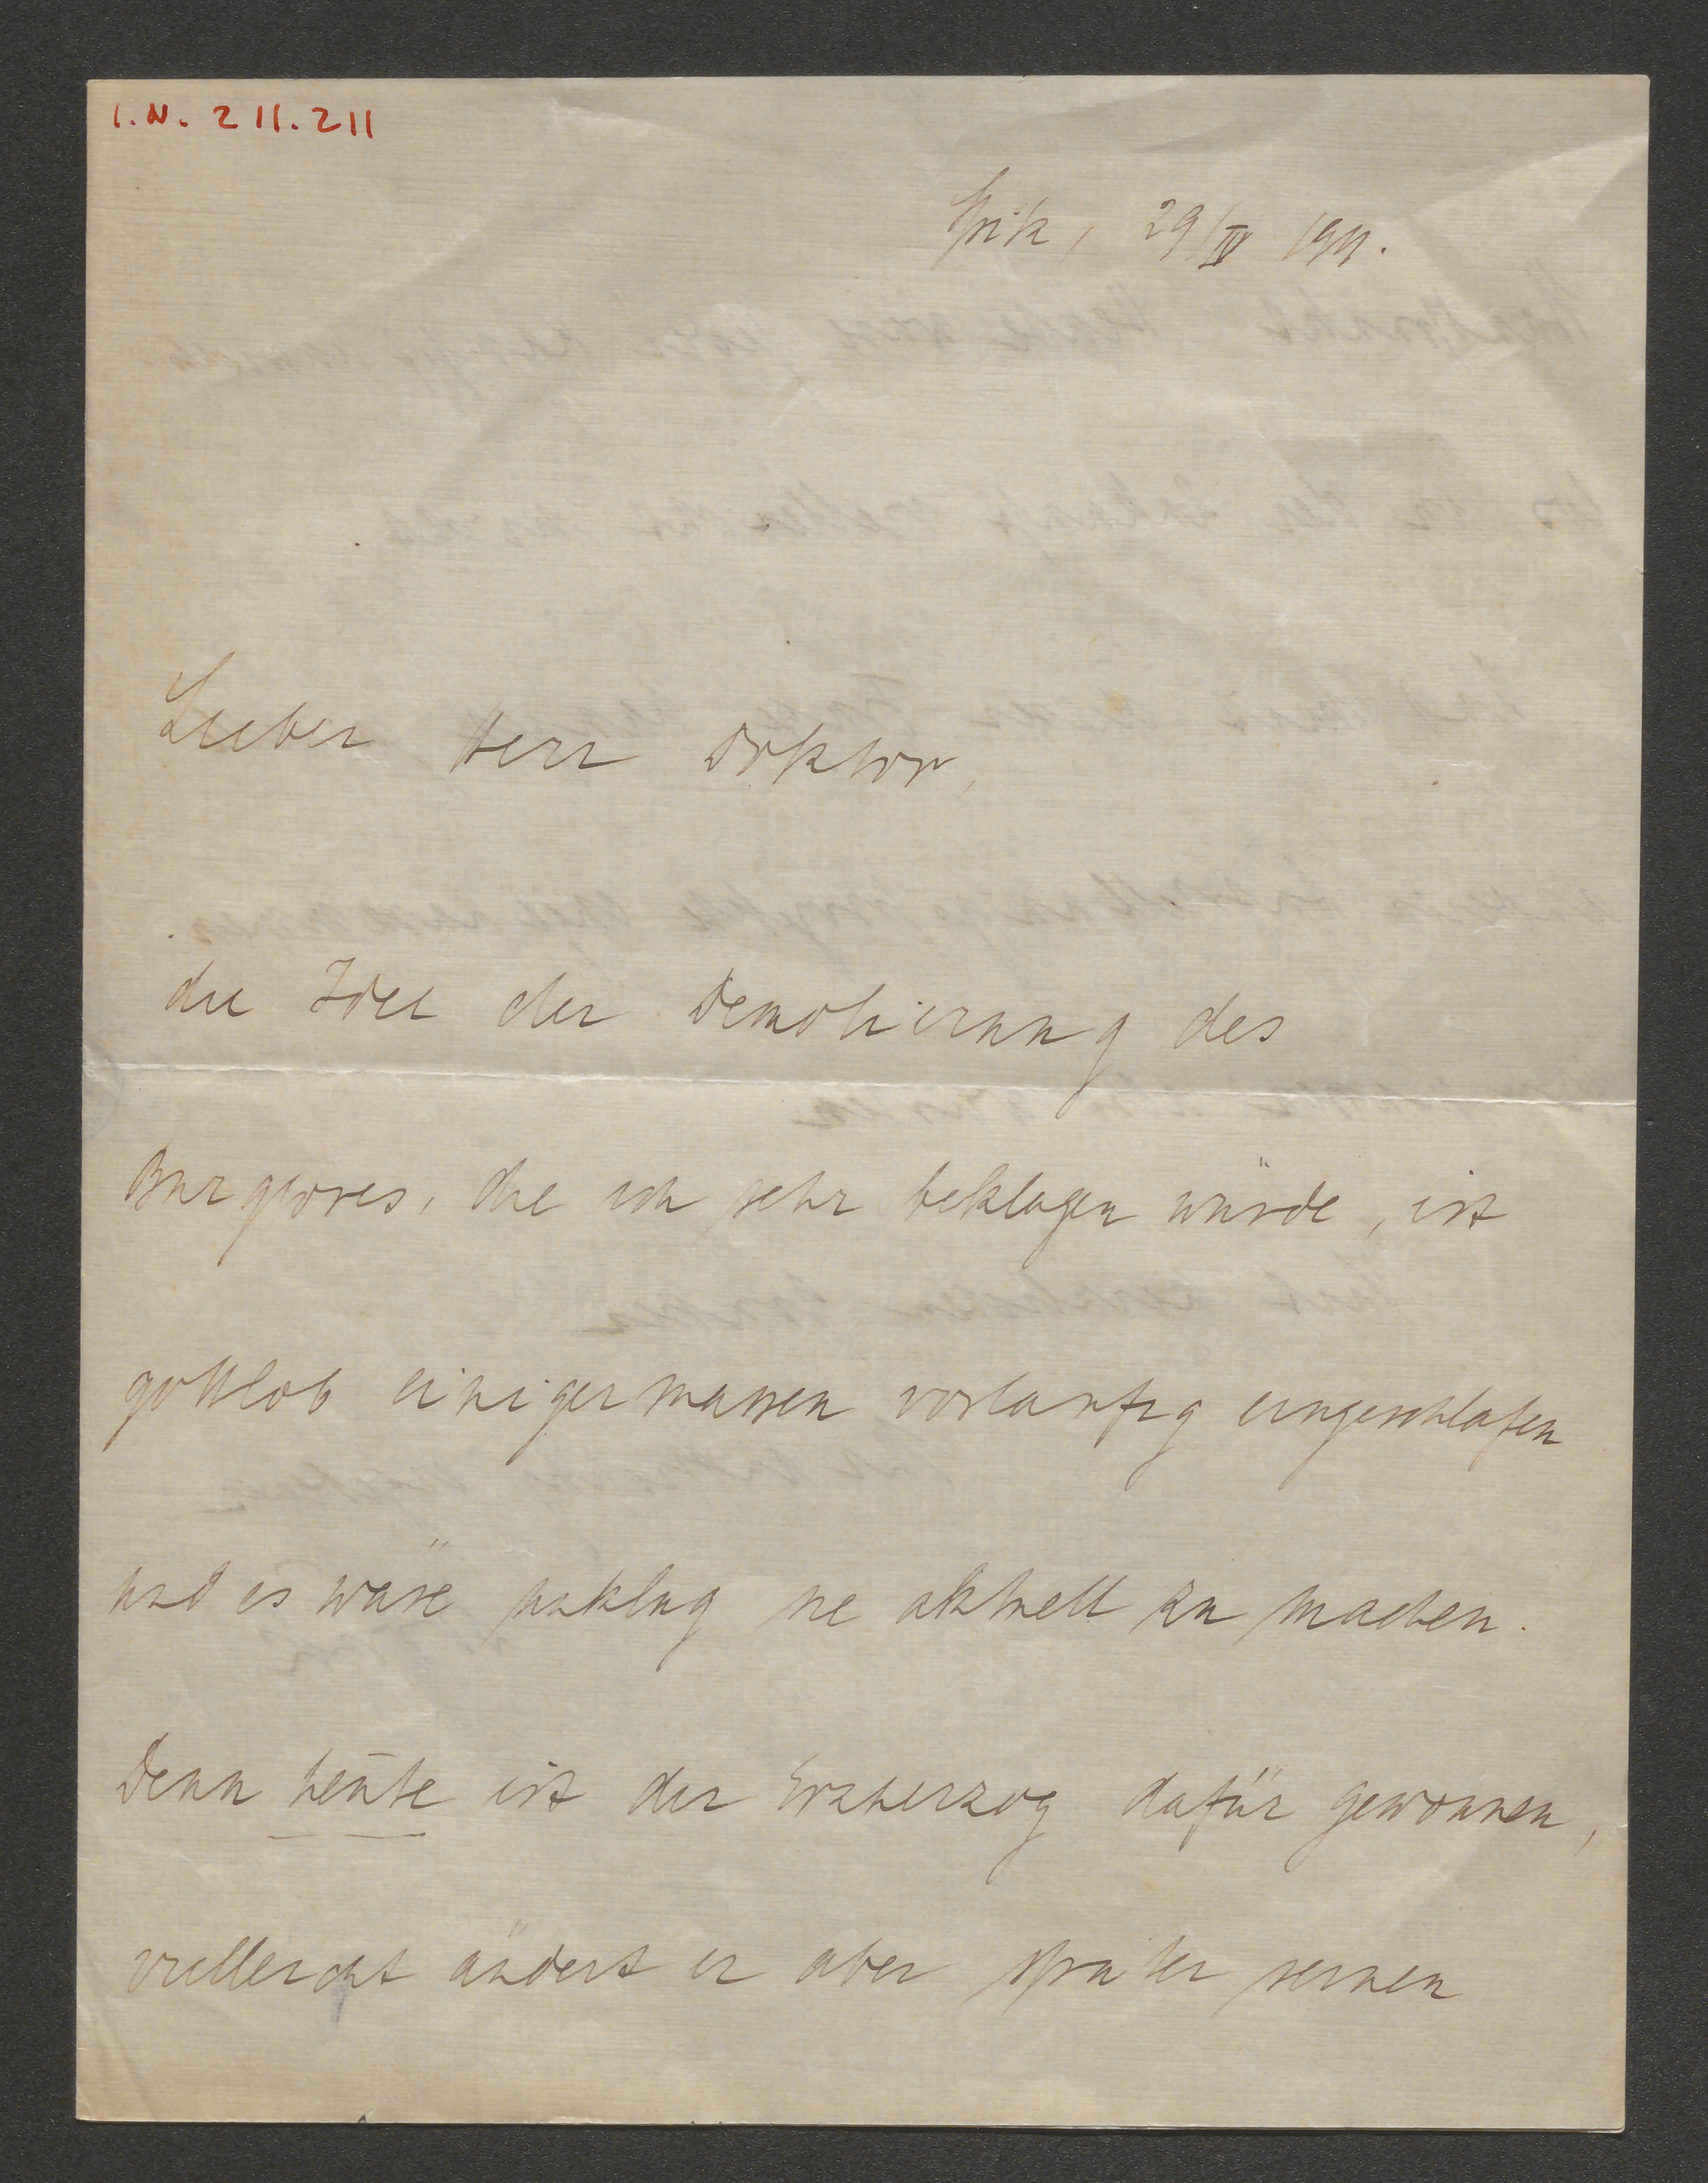 I.N. 211.211
29/IV 1911.
Lieber Herr Doktor,
die Idee der Demolierung des
Burgtores, die ich sehr beklagen würde, ist
gottlob einigermassen vorlaufig eingeschlafen
und es wäre unklug sie aktuell zu machen.
Denn heute ist der Erzherzog dafür gewonnen,
vielleicht ändert er aber spater seinen